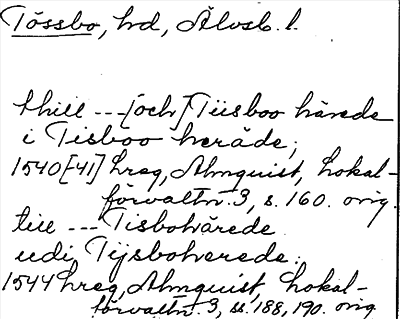 Tössbo, hd, Älvsb. l.
thill --- [och] Tiisboo härede
i Tisboo heräde;
1540[41] hreg, Almquist, Lokal-
förvaltn. 3, s. 160. orig.
till --- Tisbohärede
udi Tijsboherede.
1544 hreg, Almquist, Lokal-
förvaltn. 3, ss. 188, 190. orig